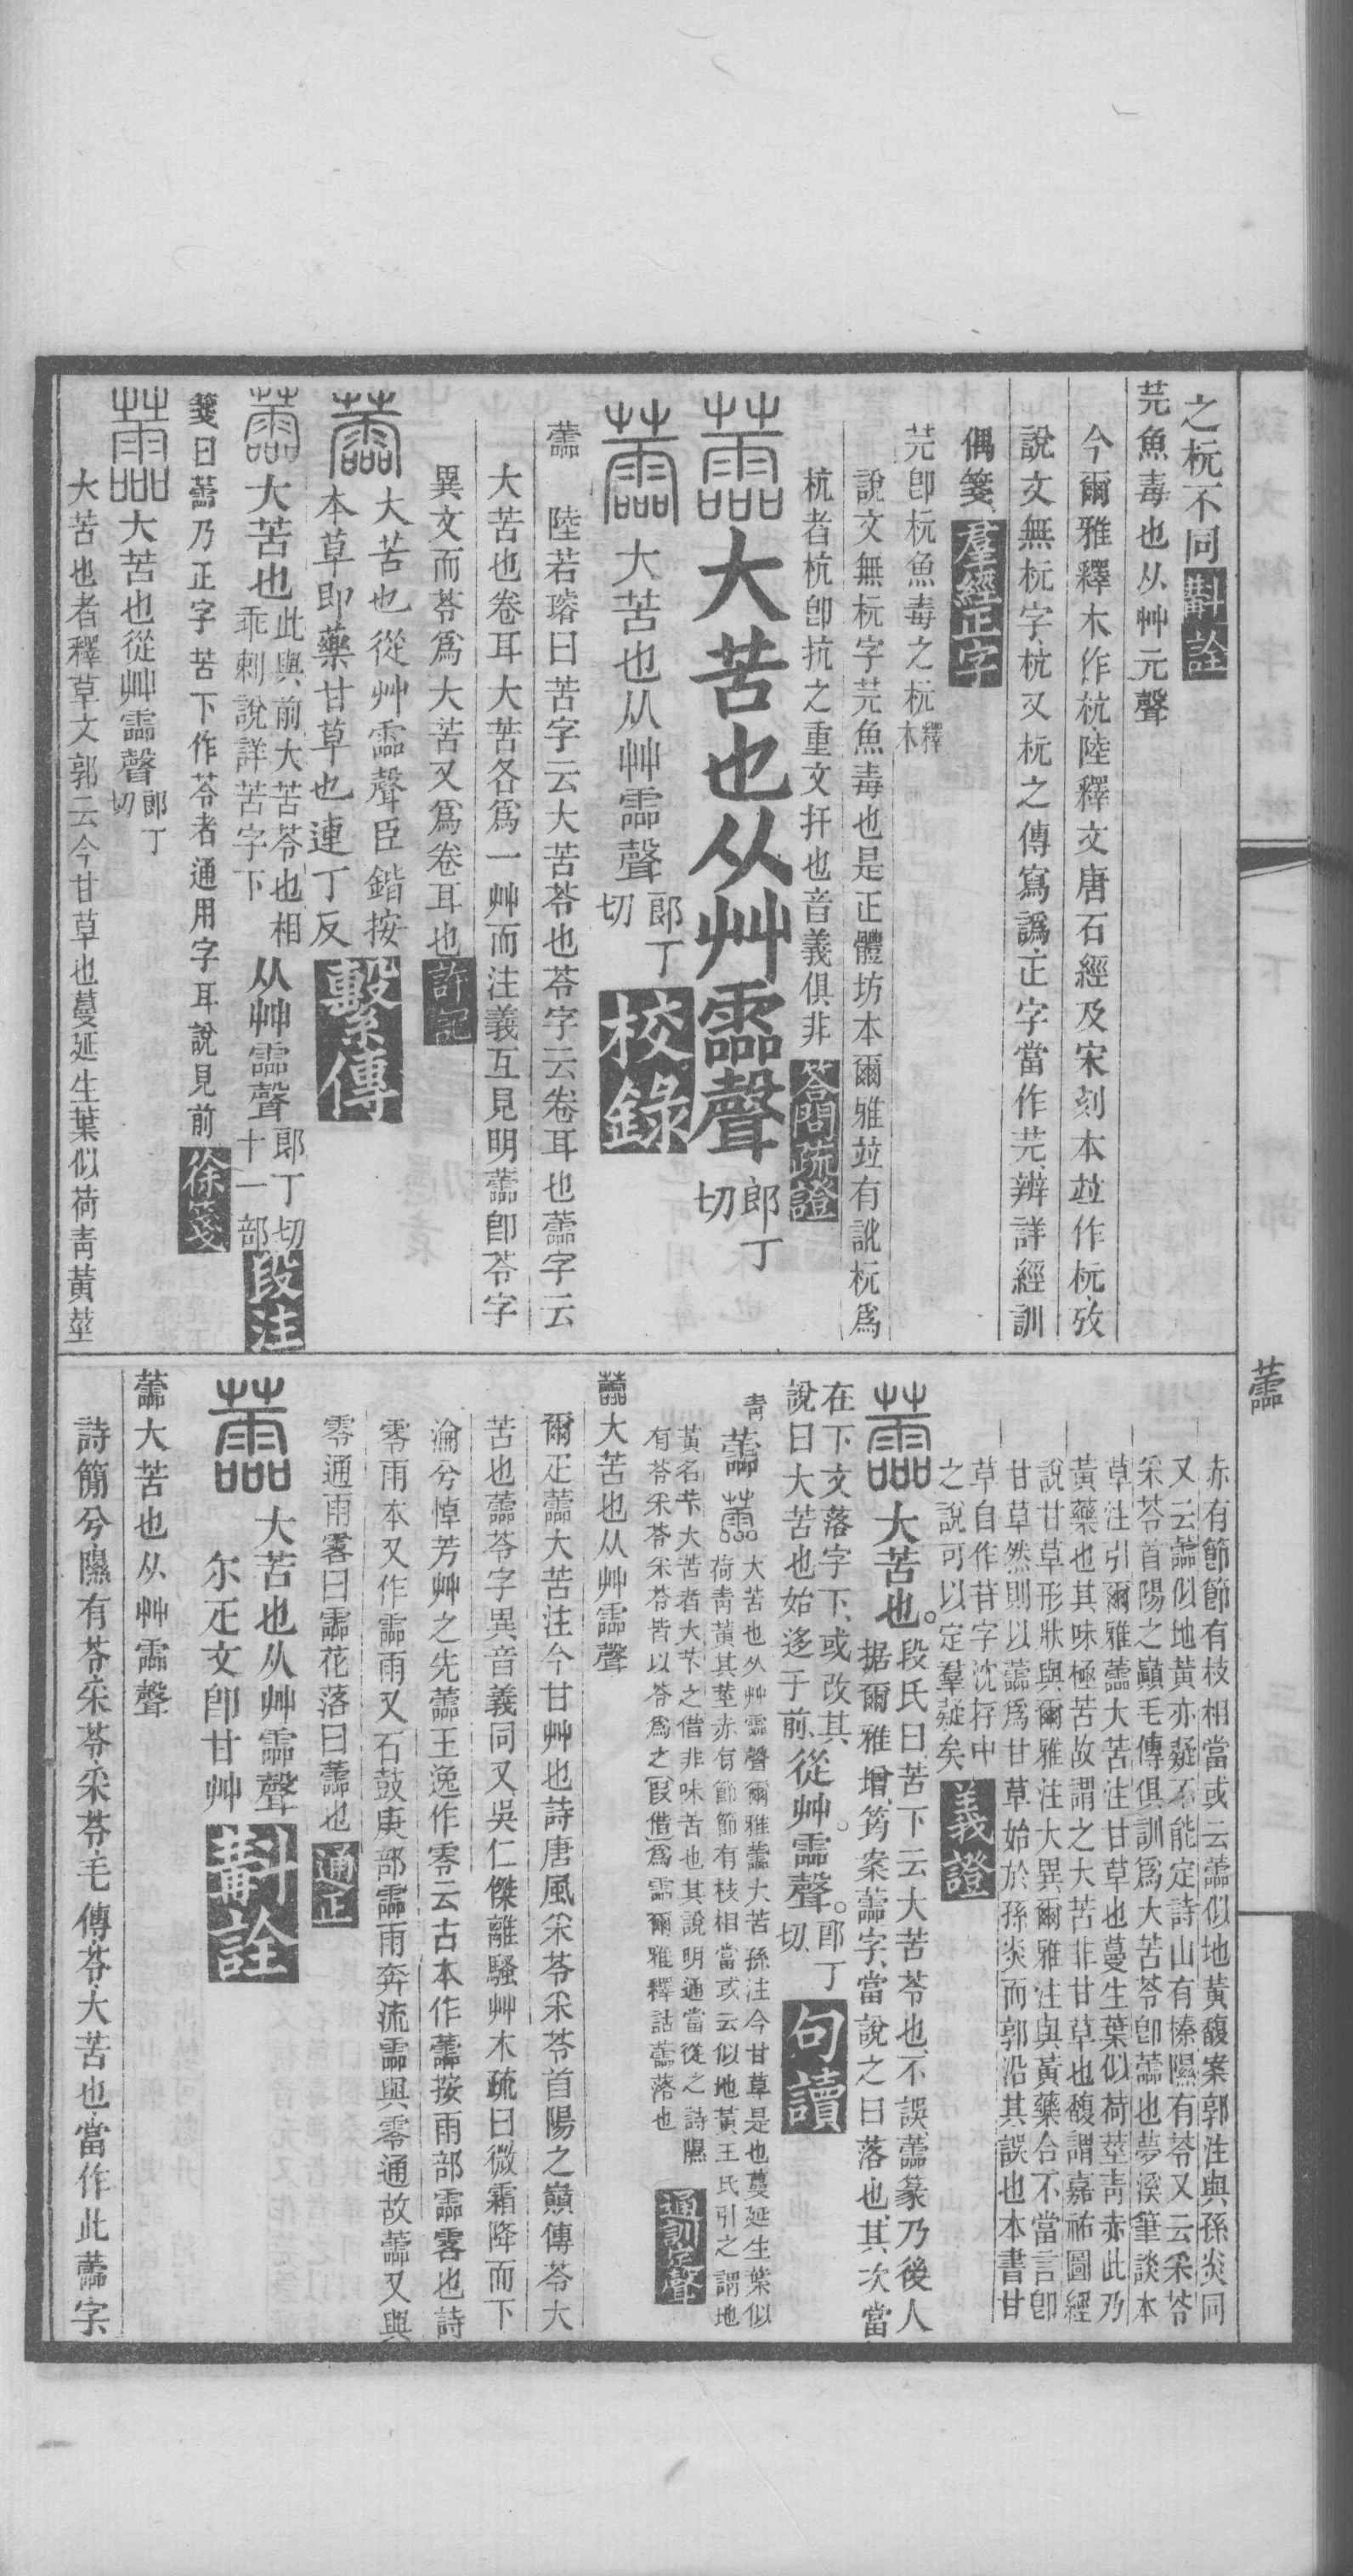 之杬不同斠詮
芫魚毒也从艸元聲
今爾雅釋木作杬陸釋文唐石經及宋刻本竝作杬攷
說文無杬字杭又杬之傳寫譌正字當作芫辨詳經訓
偶箋羣經正字
芫卽杬魚毒之杬釋木
說文無杬字芫魚毒也是正體坊本爾雅竝有訛杬爲
杭者杭卽抗之重文扞也音義俱非答問疏證
蘦大苦也从艸霝聲郎丁切
蘦大苦也从艸霝聲郎丁切校錄
蘦 陸若璿曰苦字云大苦苓也苓字云卷耳也蘦字云
大苦也卷耳大苦各爲一艸而注義互見明蘦卽苓字
異文而苓爲大苦又爲卷耳也許記
蘦大苦也從艸霝聲臣鍇按
本草卽藥甘草也連丁反繫傳
蘦大苦也此與前大苦苓也相
乖剌說詳苦字下从艸霝聲郎丁切十一部段注
箋曰蘦乃正字苦下作苓者通用字耳說見前徐箋
蘦大苦也從艸霝聲郎丁切
大苦也者釋草文郭云今甘草也蔓延生葉似荷青黃莖
蘦
赤有節節有枝相當或云蘦似地黃馥案郭注與孫炎同
又云蘦似地黃亦疑不能定詩山有榛隰有苓又云采苓
采苓首陽之巓毛傳俱訓爲大苦苓卽蘦也夢溪筆談本
草注引爾雅蘦大苦注甘草也蔓生葉似荷莖青赤此乃
黃藥也其味極苦故謂之大苦非甘草也馥謂嘉祐圖經
說甘草形狀與爾雅注大異爾雅注與黃藥合不當言卽
甘草然則以蘦爲甘草始於孫炎而郭沿其誤也本書甘
草自作苷字沈存中
之說可以定羣疑矣義證
蘦大苦也。段氏曰苦下云大苦苓也不誤蘦篆乃後人
据爾雅增筠案蘦字當說之曰落也其次當
在下文落字下或改其
說曰大苦也始迻于前從艸。霝聲。郎丁切句讀
蘦 蘦大苦也从艸霝聲爾雅蘦大苦孫注今甘草是也蔓延生葉似
荷青黃其莖赤有節節有枝相當或云似地黃王氏引之謂地
黃名芐大苦者大芐之借非味苦也其說明通當從之詩隰
有苓采苓采苓皆以苓爲之叚借爲霝爾雅釋詁蘦落也
通訓定聲
蘦大苦也从艸霝聲
爾疋蘦大苦注今甘艸也詩唐風采苓采苓首陽之巔傳苓大
苦也蘦苓字異音義同又吳仁傑離騷艸木疏曰微霜降而下
淪兮悼芳艸之先蘦王逸作零云古本作蘦按雨部霝䨩也詩
零雨本又作霝雨又石鼓庚部霝雨奔流霝與零通故蘦又與
零通雨䨩曰霝花落曰蘦也通正
蘦大苦也从艸霝聲
尔疋文卽甘艸斠詮
蘦大苦也从艸霝聲
詩簡兮隰有苓采苓采苓毛傳苓大苦也當作此蘦字